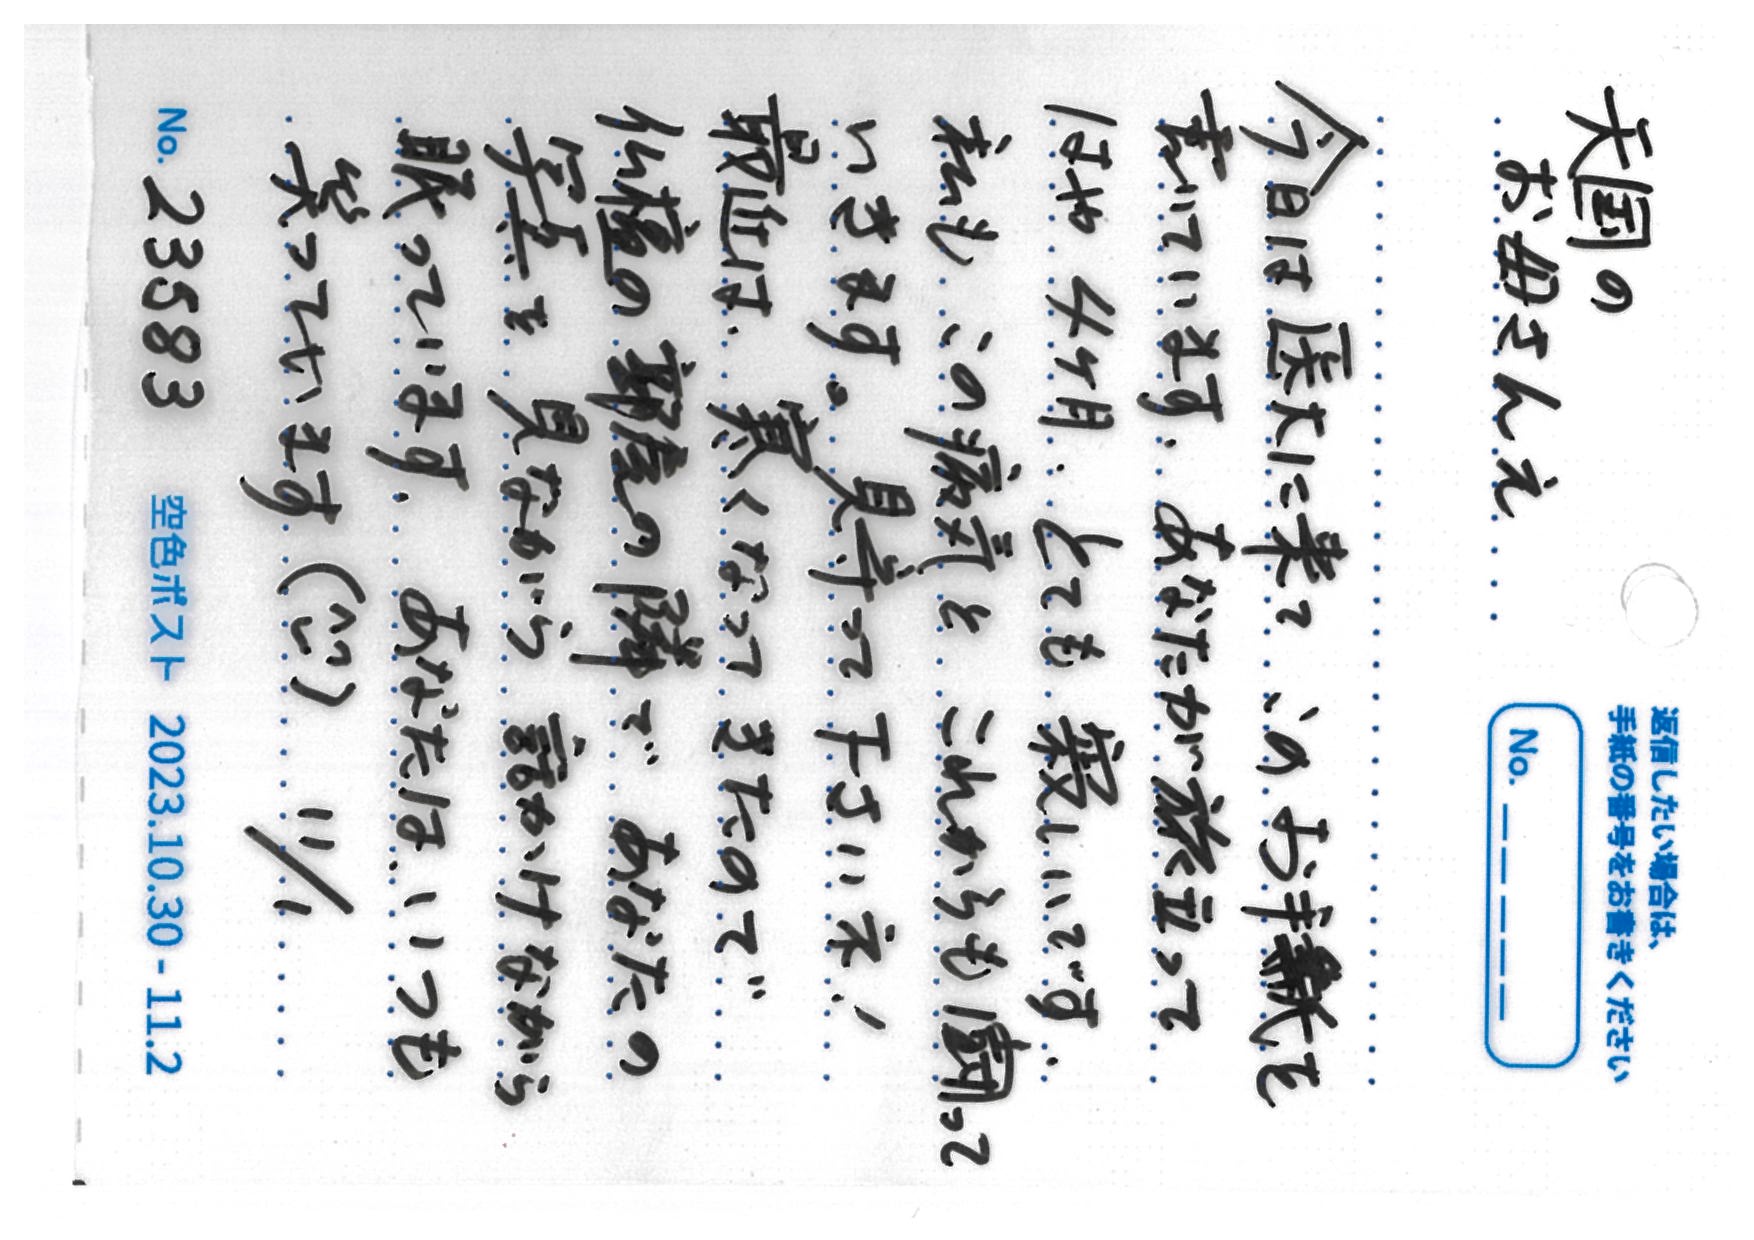 天国の
お母さんえ
返信したい場合は、
手紙の番号をお書きください
No. _ _ _ _ _
今日は医大に来て このお手紙を
書いています. あなたが旅立って
はや 4ヶ月. とても 寂しいです.
私も この病気と これからも闘って
いきます。見守って下さいネ!
最近は、寒くなって きたので
仏檀の部屋の隣で あなたの
写真を 見ながら 話かけながら
眠っています. あなたは、いつも
笑っています (^^) 11/1
No. 23583 空色ポスト 2023.10.30 - 11.2